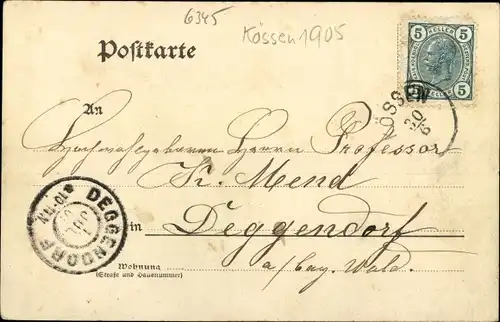 6345
Kössen 1905
Postkarte
5 HELLER 5
5 HELLER 5
KÖSSEN
30
6
An
Hochwohlgeboren Herrn Professor
Fr. Mend
in Deggendorf
a/bay. Wald.
DEGGENDORF
1
JUL
Wohnung
(Straße und Hausnummer)